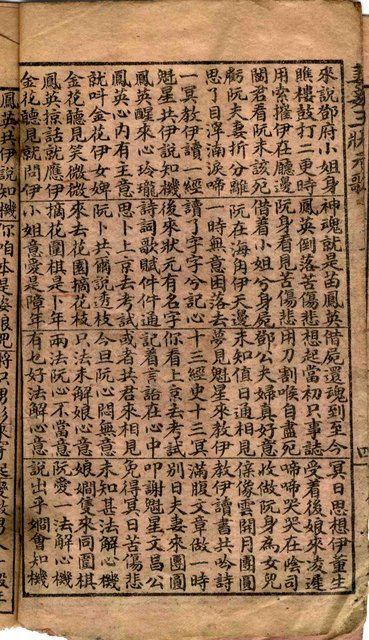 狀元歌
四
來說鄧府小姐身 神魂就是苗鳳英 借屍還魂到至今 冥日思想伊重生
瞧樓鼓打二更時 鳳英倒落苦傷悲 想起當初只事誌 受着後娘來凌遲
用索摧伊在廳邊 阮身看見苦傷悲 用刀割喉自盡死 啼啼哭哭在陰司
閻君看阮未該死 借着小姐兮身屍 鄧公夫婦真好意 收做阮身為女兒
虧阮夫妻折分離 阮在海角伊天邊 未知值日通相見 保像雲開月團圓
思了目滓滿淚啼 一時無意困落去 夢見魁星來教伊 教伊讀書共吟詩
一冥教伊讀一經 讀了字字兮記心 十三經史十三冥 滿腹文章做一時
魁星共伊說知機 後來狀元有名字 你看上京去考試 別日夫妻來團圓
鳳英醒來心玲瓏 詩詞歌賦件件通 記着言語在心中 叩謝魁星文昌公
鳳英心內有主意 思卜上京去考試 或者共君來相見 免得冥日苦傷悲
就叫金花伊女婢 阮卜共爾說透枝 今旦阮心悶無意 未知甚法解心機
金花聽見笑微微 來去花園摘花枝 只法未解娘心意 娘嫺隻來同圍棋
鳳英掠話就應伊 摘花圍棋是卜年 兩法阮心不當意 阮愛一法解心機
金花聽見就問伊 小姐意愛是障年 有乜好法解心意 說出乎嫺會知機
鳳英共伊說知機 你咱本是姿娘兒 將只男衫來穿起